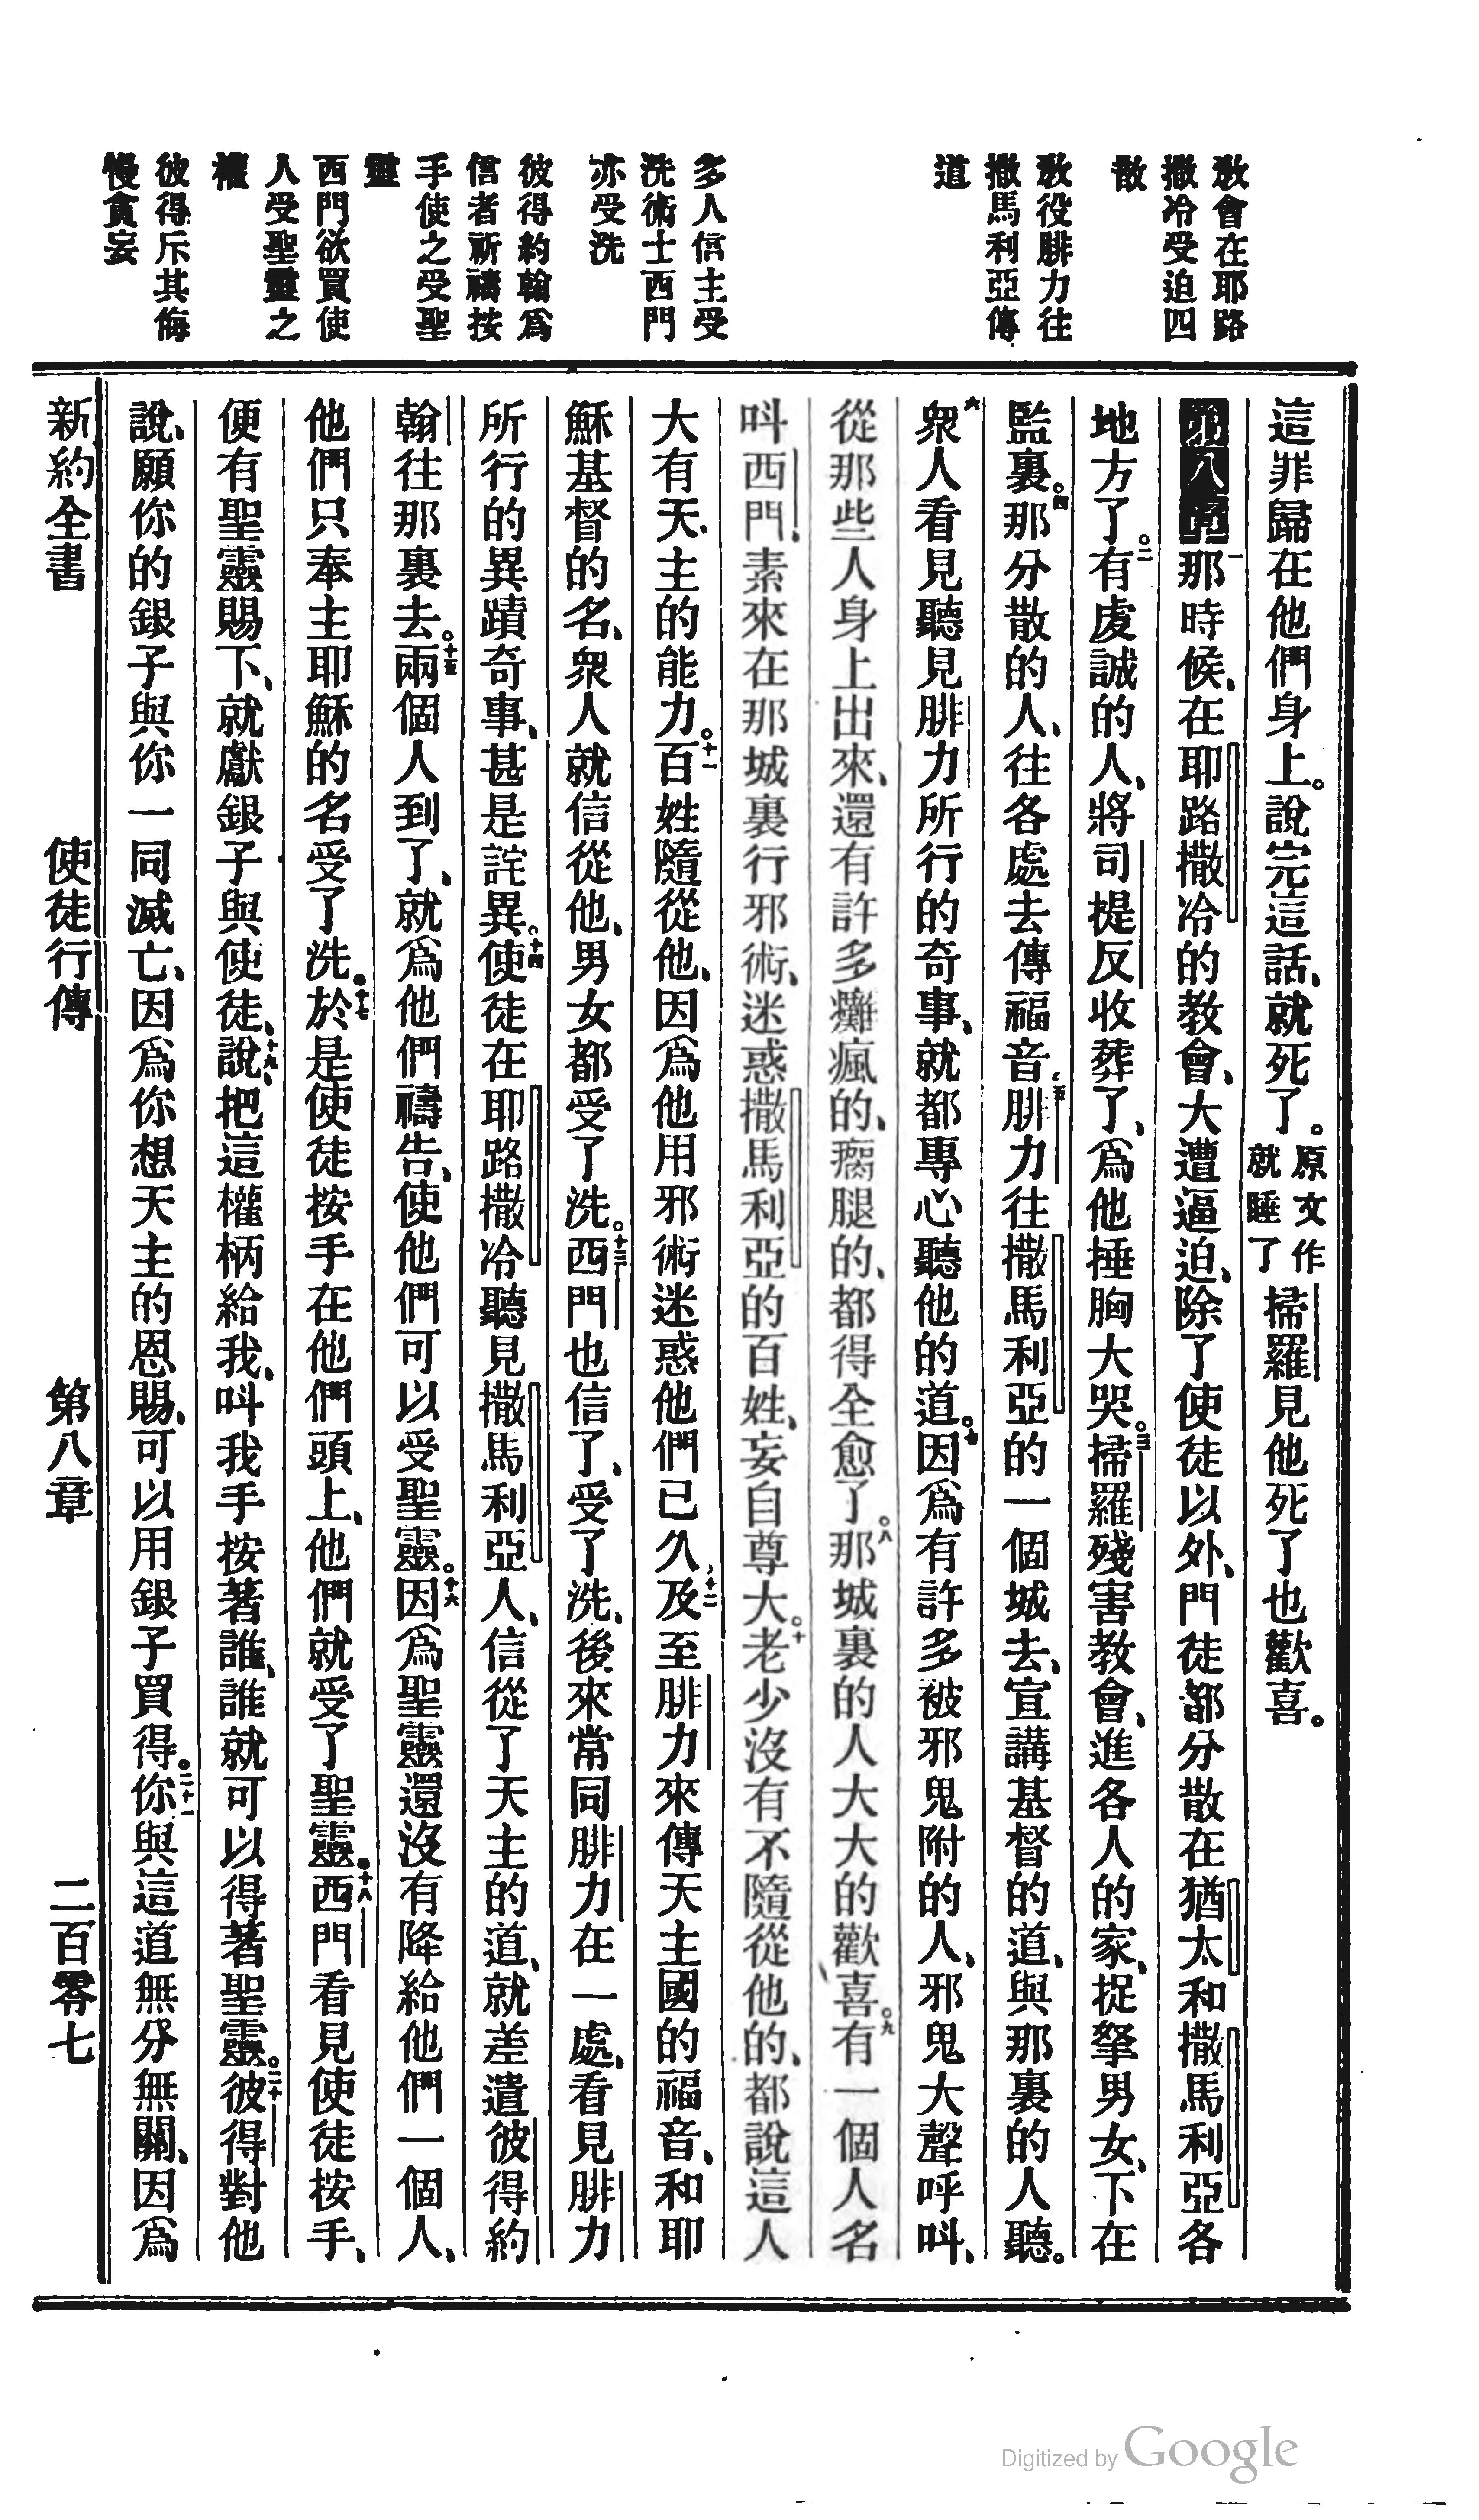 教會在耶路
撒冷受迫四
散
教役腓力往
撒馬利亞傳
道
多人信主受
洗術士西門
亦受洗
彼得約翰爲
信者祈禱按
手使之受聖
靈
西門欲買使
人受聖靈之
權
彼得斥其侮
慢貪妄
這罪歸在他們身上。說完這話、就死了。原文作就睡了掃羅見他死了也歡喜。
第八章一那時候、在耶路撒冷的教會、大遭逼迫、除了使徒以外、門徒都分散在猶太和撒馬利亞各
地方了。二有虔誠的人、將司提反收葬了、爲他捶胸大哭。三掃羅殘害教會、進各人的家、捉拏男女、下在
監裏。四那分散的人、往各處去傳福音、五腓力往撒馬利亞的一個城去、宣講基督的道、與那裏的人聽。
六衆人看見聽見腓力所行的奇事、就都專心聽他的道。七因爲有許多被邪鬼附的人、邪鬼大聲呼呌、
從那些人身上出來、還有許多癱瘋的、瘸腿的、都得全愈了。八那城裏的人大大的歡喜。九有一個人名
呌西門、素來在那城裏行邪術、迷惑撒馬利亞的百姓、妄自尊大。十老少沒有不隨從他的、都說這人
大有天主的能力。十一百姓隨從他、因爲他用邪術迷惑他們已久、十二及至腓力來傳天主國的福音、和耶
穌基督的名、衆人就信從他、男女都受了洗。十三西門也信了、受了洗、後來常同腓力在一處、看見腓力
所行的異蹟奇事、甚是詫異。十四使徒在耶路撒冷聽見撒馬利亞人、信從了天主的道、就差遣彼得約
翰往那裏去。十五兩個人到了、就爲他們禱告、使他們可以受聖靈。十六因爲聖靈還沒有降給他們一個人、
他們只奉主耶穌的名受了洗。十七於是使徒按手在他們頭上、他們就受了聖靈。十八西門看見使徒按手、
便有聖靈賜下、就獻銀子與使徒、十九說、把這權柄給我、呌我手按著誰、誰就可以得著聖靈。二十彼得對他
說、願你的銀子與你一同滅亡、因爲你想天主的恩賜、可以用銀子買得。二十一你與這道無分無關、因爲
新約全書 使徒行傳 第八章 二百零七
Digitized by Google